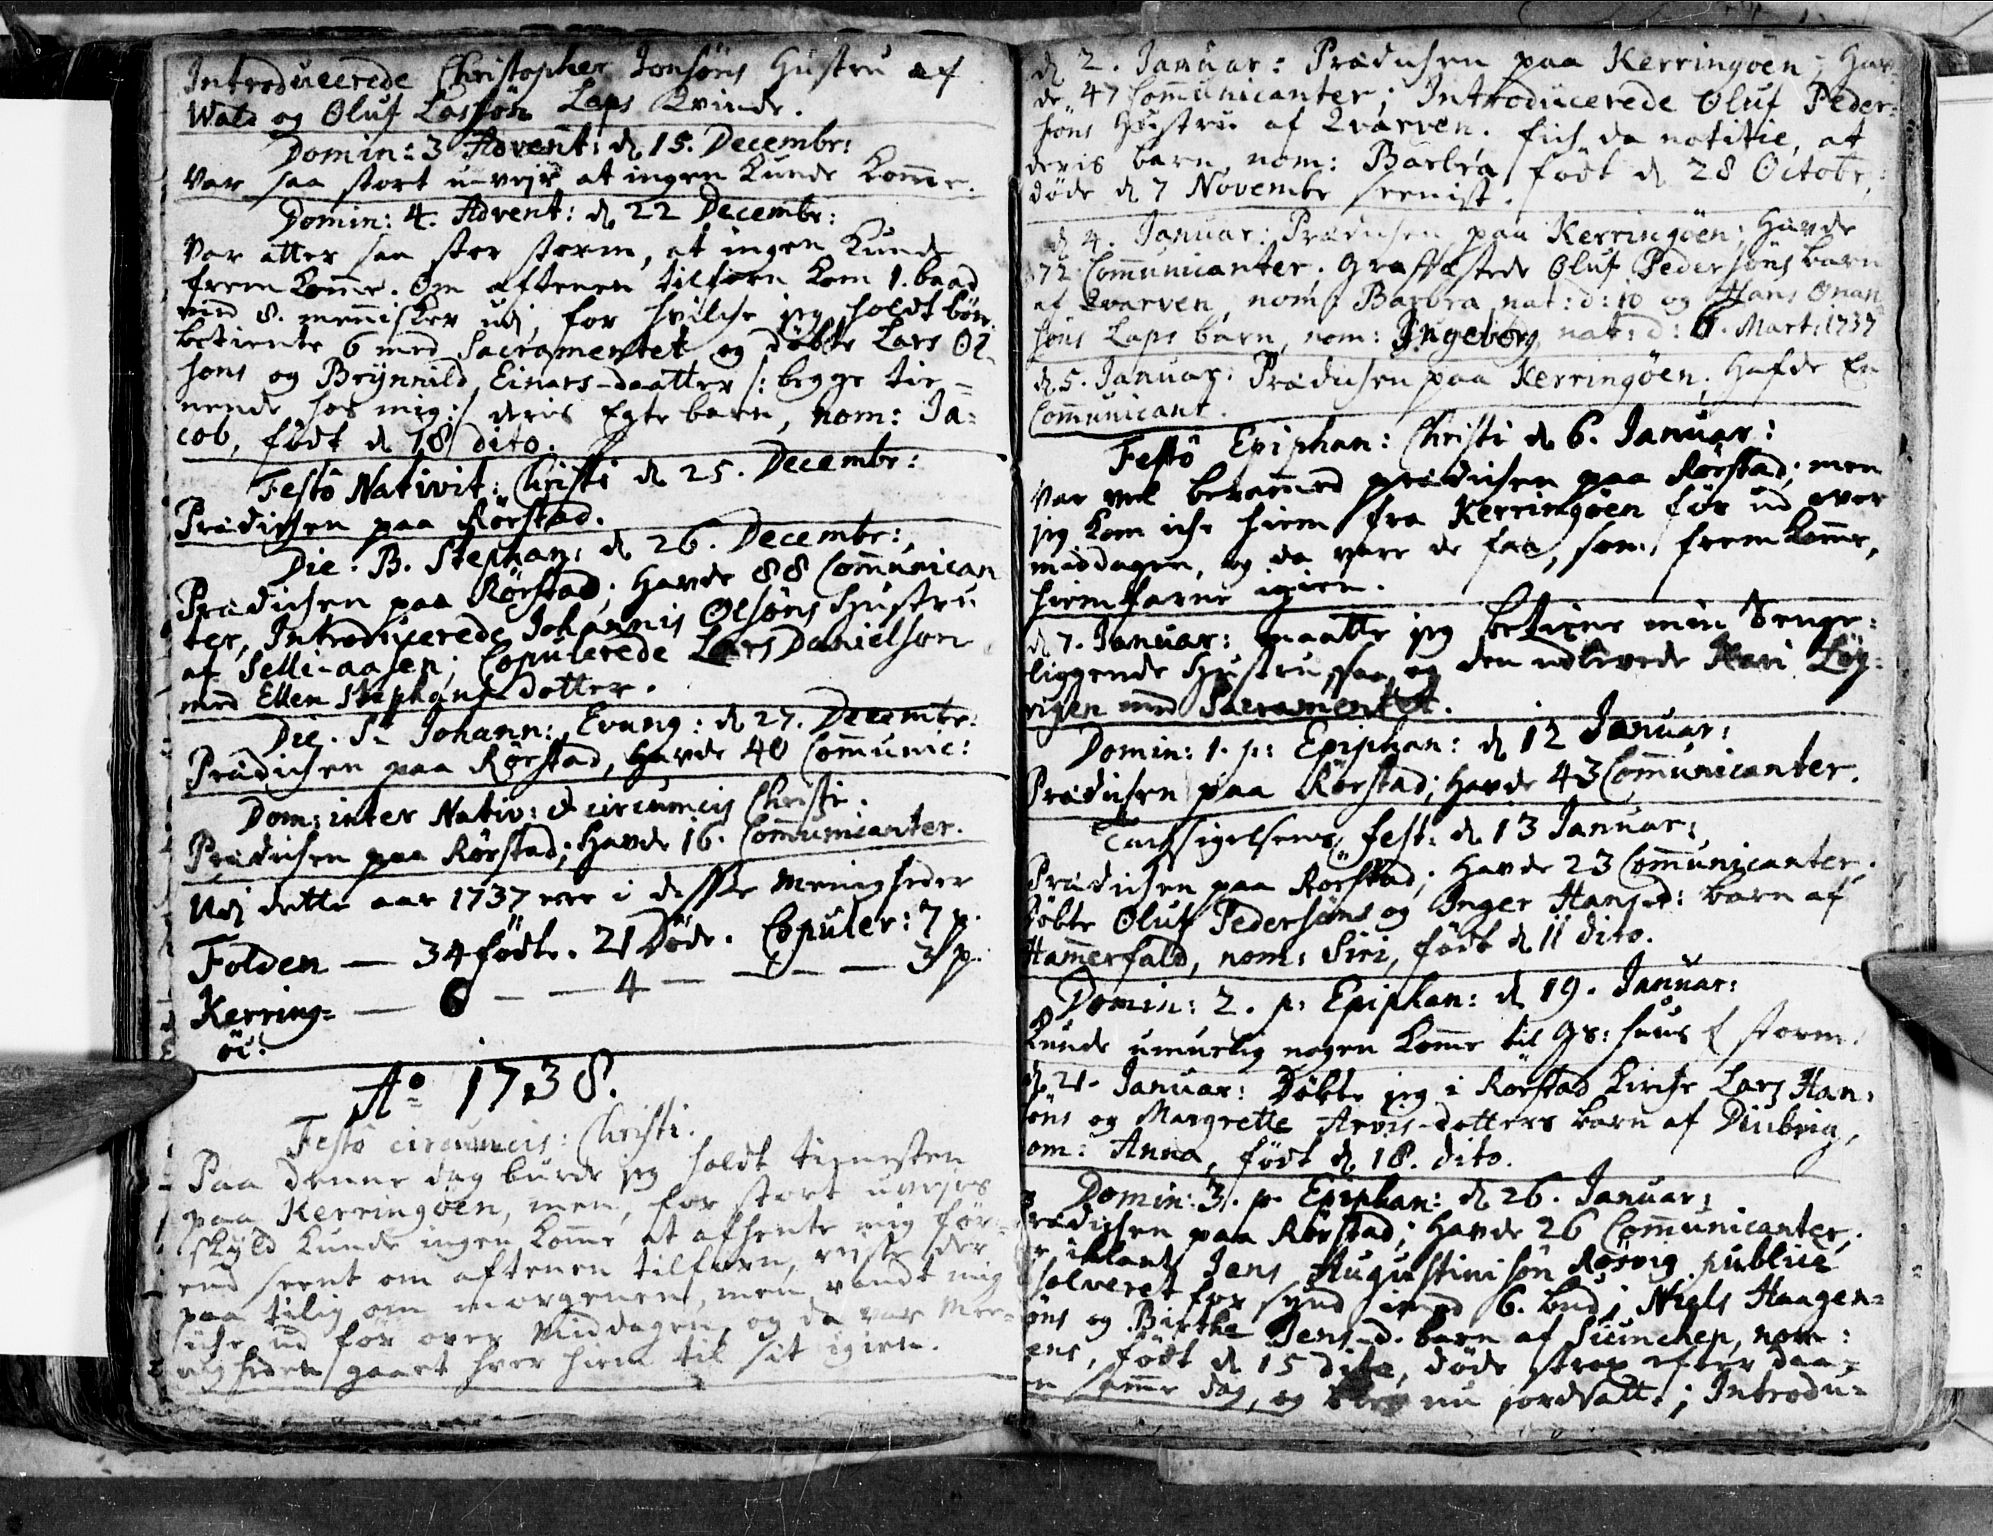 Introducerede Christopher Jonsøns Hustru af
Wald og Oluf Lassøn Laps Qvinde.
Domin: 3 Advent: d. 15. Decembr:
Var saa stort u-vejr at ingen kunde komme.
Domin: 4. Advent: d. 22 Decembr:
Var atter saa stor storm, at ingen kunde
frem komme. Om aftenen tilforn kom 1. baad
med 8. mennisker udj, for hvilche jeg holdt bøn,
betiente 6 med Sacramentet og døbte Lars Ol-
søns og Brynnild Einars-daatter /: begge tie-
nende hos mig :/ deris Egte barn, nom: Ja-
cob, født d. 18 dito.
Festo Nativit: Christi d. 25. Decembr:
Prædichen paa Rörstad.
Die. B. Stephan: d. 26. Decembr:
Prædichen paa Rörstad; Havde 88 Communican
ter, Introducerede Johannis Olsøns Hustru
af Selli-aasen; Copulerede Lars Danielsøn
med Ellen Stephans dotter.
Die. St. Johann: Evang: d. 27. Decembr:
Prædichen paa Rørstad, Havde 40 Communic:
Dom: inter Nativ: & circumcis Christi.
Prædichen paa Rørstad; Havde 16. Communicanter.
Udj dette aar 1737 ere i disse Menigheder
Folden — 34 fødte. 21 Døde. Copuler: 7 p.
Kerring- — 6 — — 4 — — — 3 p.
öe:
Ao 1738.
Festo circumcis: Christi.
Paa denne dag burde jeg holdt tienesten
paa Kerringöen, men, for stort uvejrs
skyld kunde ingen komme at afhente mig før-
end seent om aftenen tilforn, rejste der
paa tilig om morgenen, men vandt mig
iche ud før over Middagen, og da var Me-
nigheden gaaet hver hiem til sit igien.
d. 2. Januar: Prædichen paa Kerringöen; Hav-
de 47 Communicanter; Introducerede Oluf Peder-
søns Hustru af Qvarven. fich da notitie, at
deris barn, nom: Barbra født d. 28 Octobr,
døde d. 7 Novembr seenist.
d. 4. Januar: Prædichen paa Kerringöen; Havde
72 Communicanter. Graffæstede Oluf Pedersøns barn
af Qvarven, nom: Barbra nat: d: 10 og Hans Onan
søns Laps barn, nom: Ingeborg nat: d: 6. Mart: 1737
d. 5. Januar: Prædichen paa Kerringöen; Hafde En
Communicant.
Festo Epiphan: Christi d. 6. Januar:
Var vel berammed prædichen paa Rørstad; men
jeg kom iche hiem fra Kerringöen før ud over
middagen, og da vare de faa, som frem komme,
hiemfarne igien.
d. 7. Januar: maatte jeg betiene min Senge-
liggende Hustru saa og den udlevede Kari Løg-
vigen med Sacramentet.
Domin: 1. p: Epiphan: d. 12 Januar:
Prædichen paa Rörstad; Havde 43 Communicanter.
Tachsigelsens fest: d. 13 Januar:
Prædichen paa Rorstad; Havde 23 Communicanter;
døbte Oluf Pedersøns og Inger Hans-d: barn af
Hammerfald, nom: Siri, født d. 11 dito.
Domin: 2. p: Epiphan: d. 19. Januar:
Kunde umuelig nogen komme til Gs: huus f storm.
d. 21. Januar: Døbte jeg i Rörstad Kirche Lars Han-
søns og Margrette Arvis-dotters barn af Diubvig,
om: Anna, født d. 18. dito.
Domin: 3. p. Epiphan: d. 26. Januar:
rædichen paa Rörstad; Havde 26 Communicanter,
iblant Jens Augustinisön Rösvig publice
solveret for synd imod 6. bud; Niels Haagen-
øns og Birthe Jens-d. barn af Siunchen, nom:
ens, født d. 15 dito, døde strax efter daa-
n samme dag, og blev nu jordsatt.; Introdu-